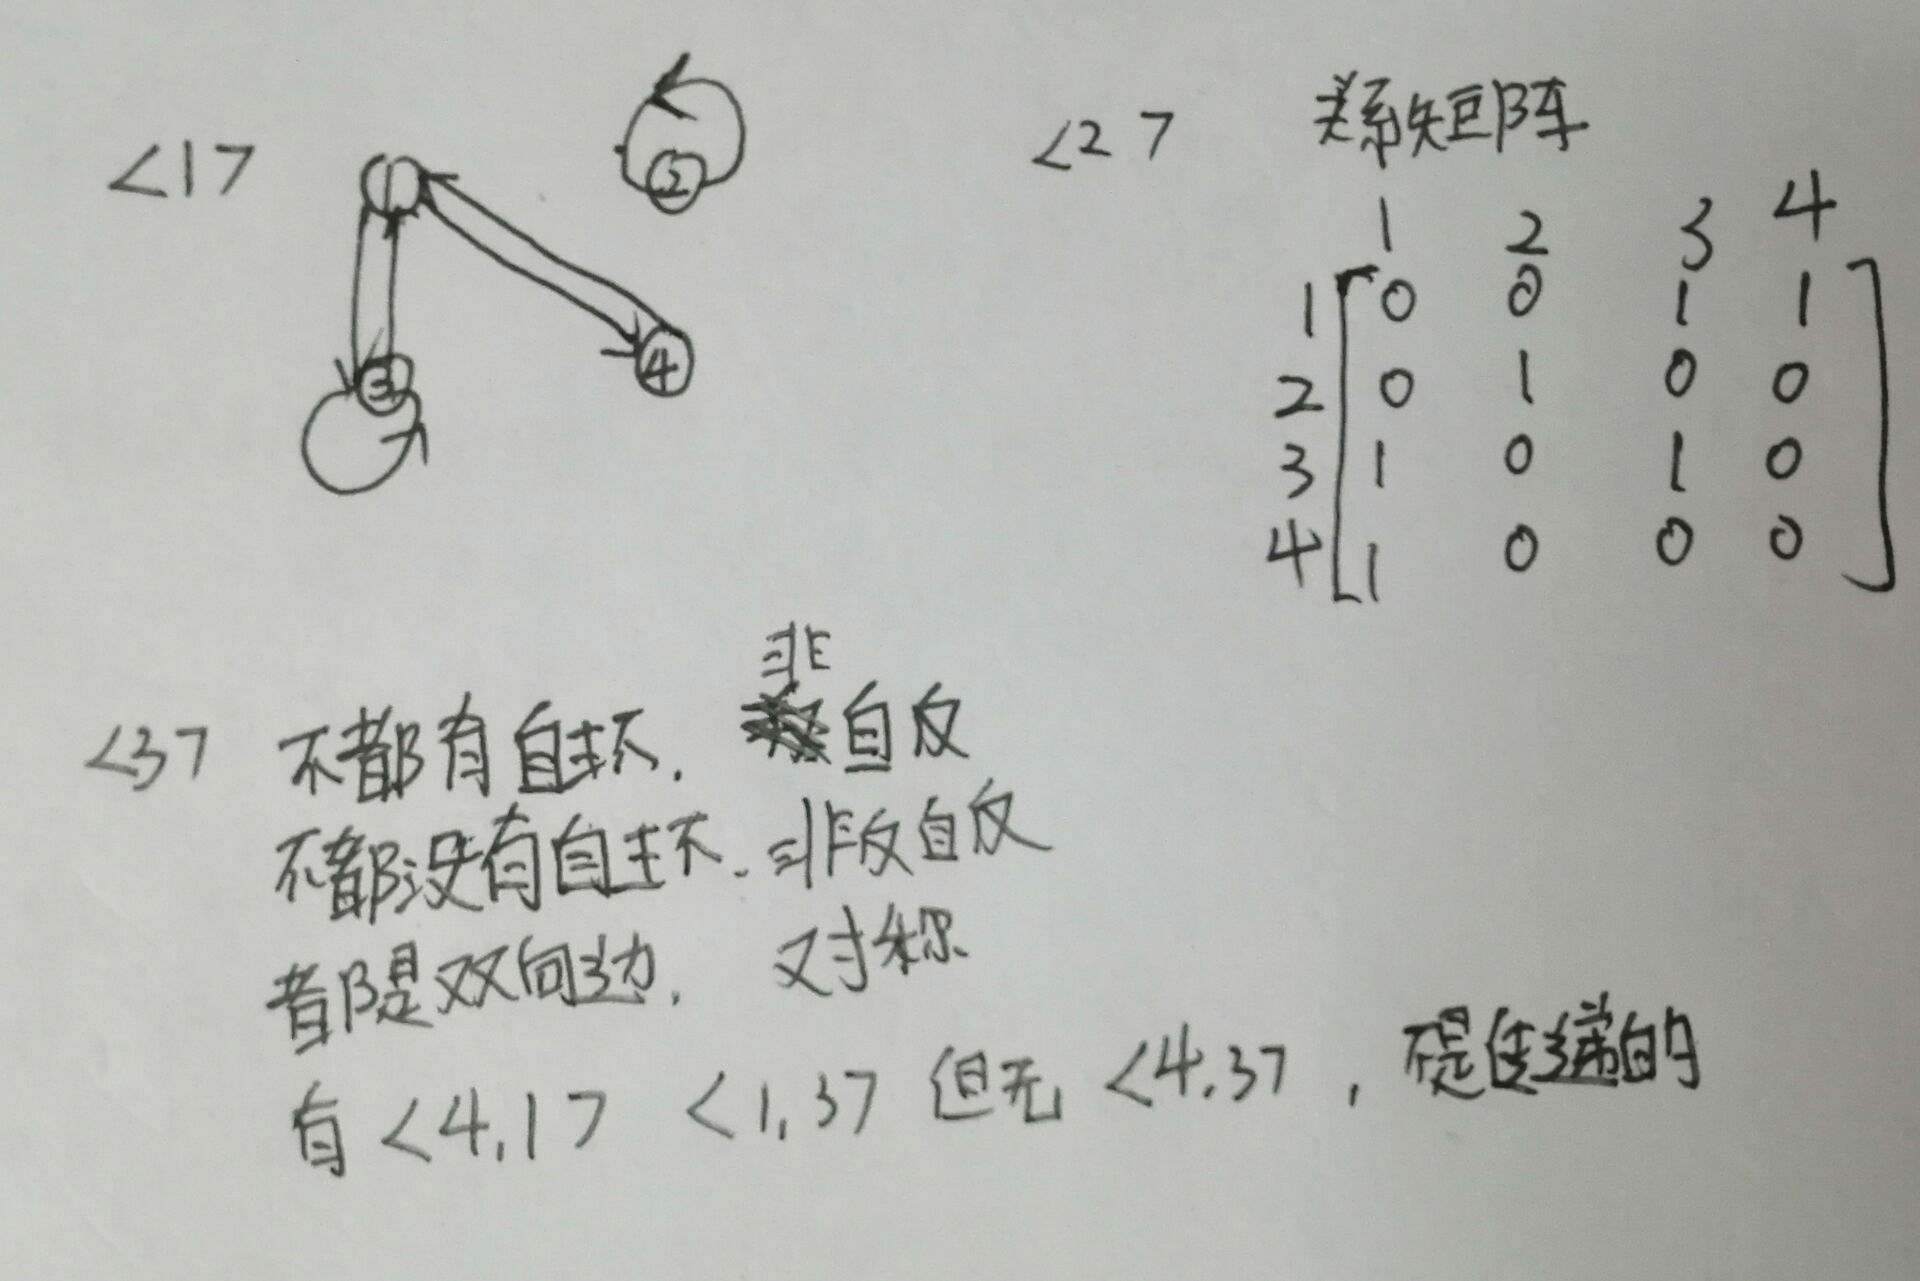 <1>
1
2
3
4
<2> 关系矩阵
1 2 3 4
1 0 0 1 1
2 0 1 0 0
3 1 0 1 0
4 1 0 0 0
<3> 不都有自环. 非自反
不都没有自环. 非反自反
都是双向边. 对称
有<4.1> <1.3> 但无<4.3>, 不是传递的